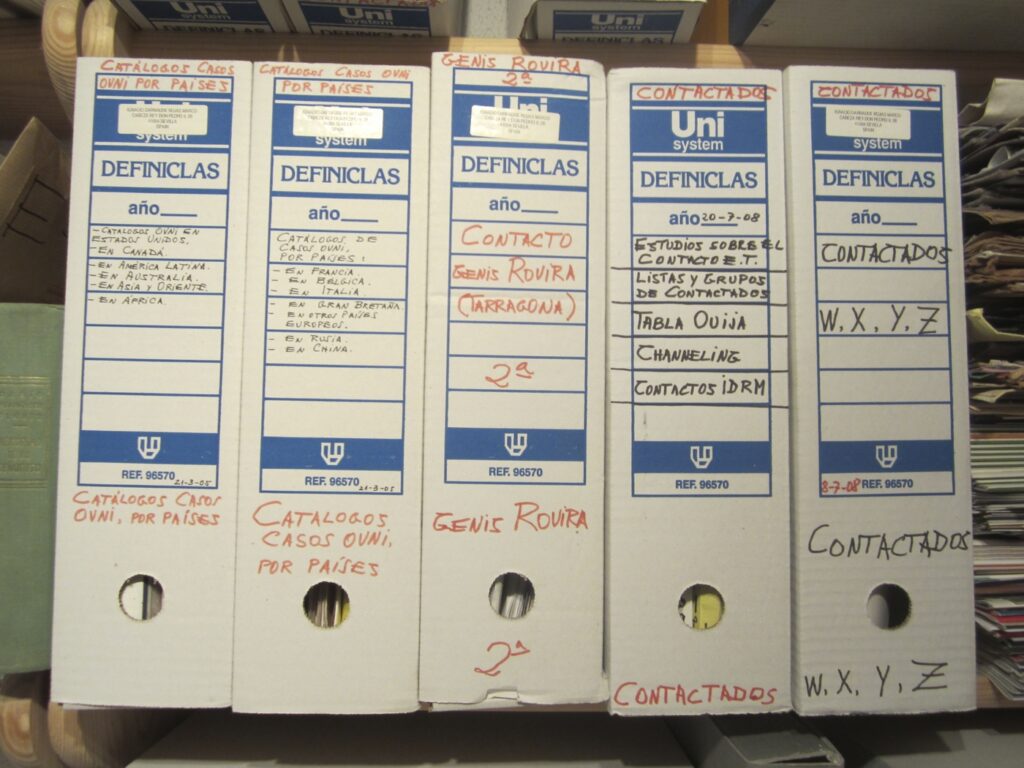 Uni
system
Uni
system
DEFINICLAS
Uni
system
DEFINICLAS
system
CATÁLOGOS CASOS
OVNI POR PAÍSES
Uni
system
DEFINICLAS
año
- CATÁLOGOS OVNI EN
ESTADOS UNIDOS.
- EN CANADÁ.
- EN AMÉRICA LATINA.
- EN AUSTRALIA.
- EN ASIA Y ORIENTE.
- EN ÁFRICA.
REF. 96570
21-3-05
CATÁLOGOS CASOS
OVNI, POR PAÍSES
CATÁLOGOS CASOS OVNI
POR PAÍSES
system
DEFINICLAS
año
CATÁLOGOS DE
CASOS OVNI,
POR PAÍSES:
- EN FRANCIA
- EN BELGICA.
- EN ITALIA
- EN GRAN BRETAÑA.
- EN OTROS PAÍSES
EUROPEOS.
- EN RUSIA.
- EN CHINA.
REF. 96570
21-3-05
CATALOGOS
CASOS OVNI,
POR PAÍSES
GENIS ROVIRA
2ª
Uni
DEFINICLAS
año
CONTACTO
GENIS ROVIRA
(TARRAGONA)
2ª
REF. 96570
GENIS ROVIRA
2ª
CONTACTADOS
Uni
system
DEFINICLAS
año 20-7-08
ESTUDIOS SOBRE EL
CONTACTO E.T.
LISTAS Y GRUPOS
DE CONTACTADOS
TABLA OUIJA
CHANNELING
CONTACTOS IDRM
REF. 96570
CONTACTADOS
CONTACTADOS
system
DEFINICLAS
año
CONTACTADOS
W, X, Y, Z
8-7-08 REF. 96570
CONTACTADOS
W, X, Y, Z